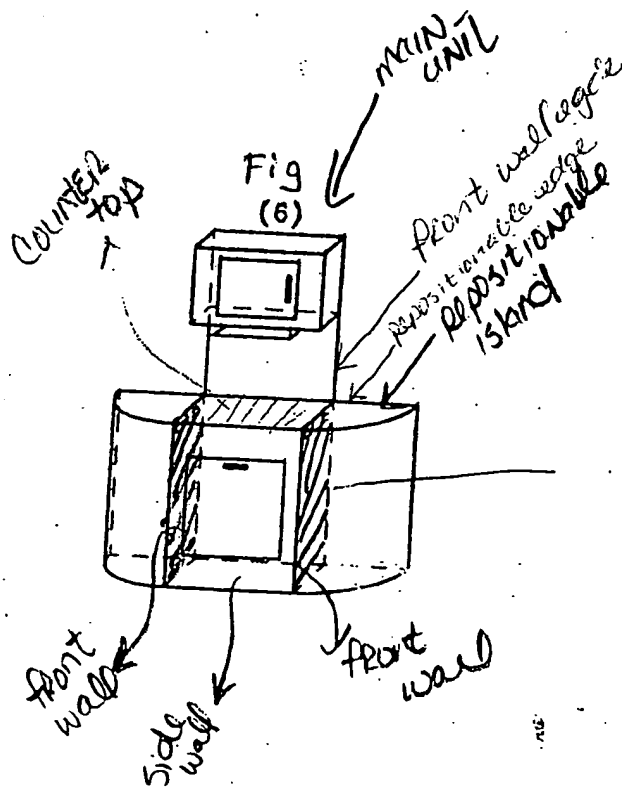 MAIN-
UNIT
Fig
(6)
COUNTER
top
front wall egde
repositionable edge
REPOSITIONABLE
island
front
wall
side
wall
front
wall